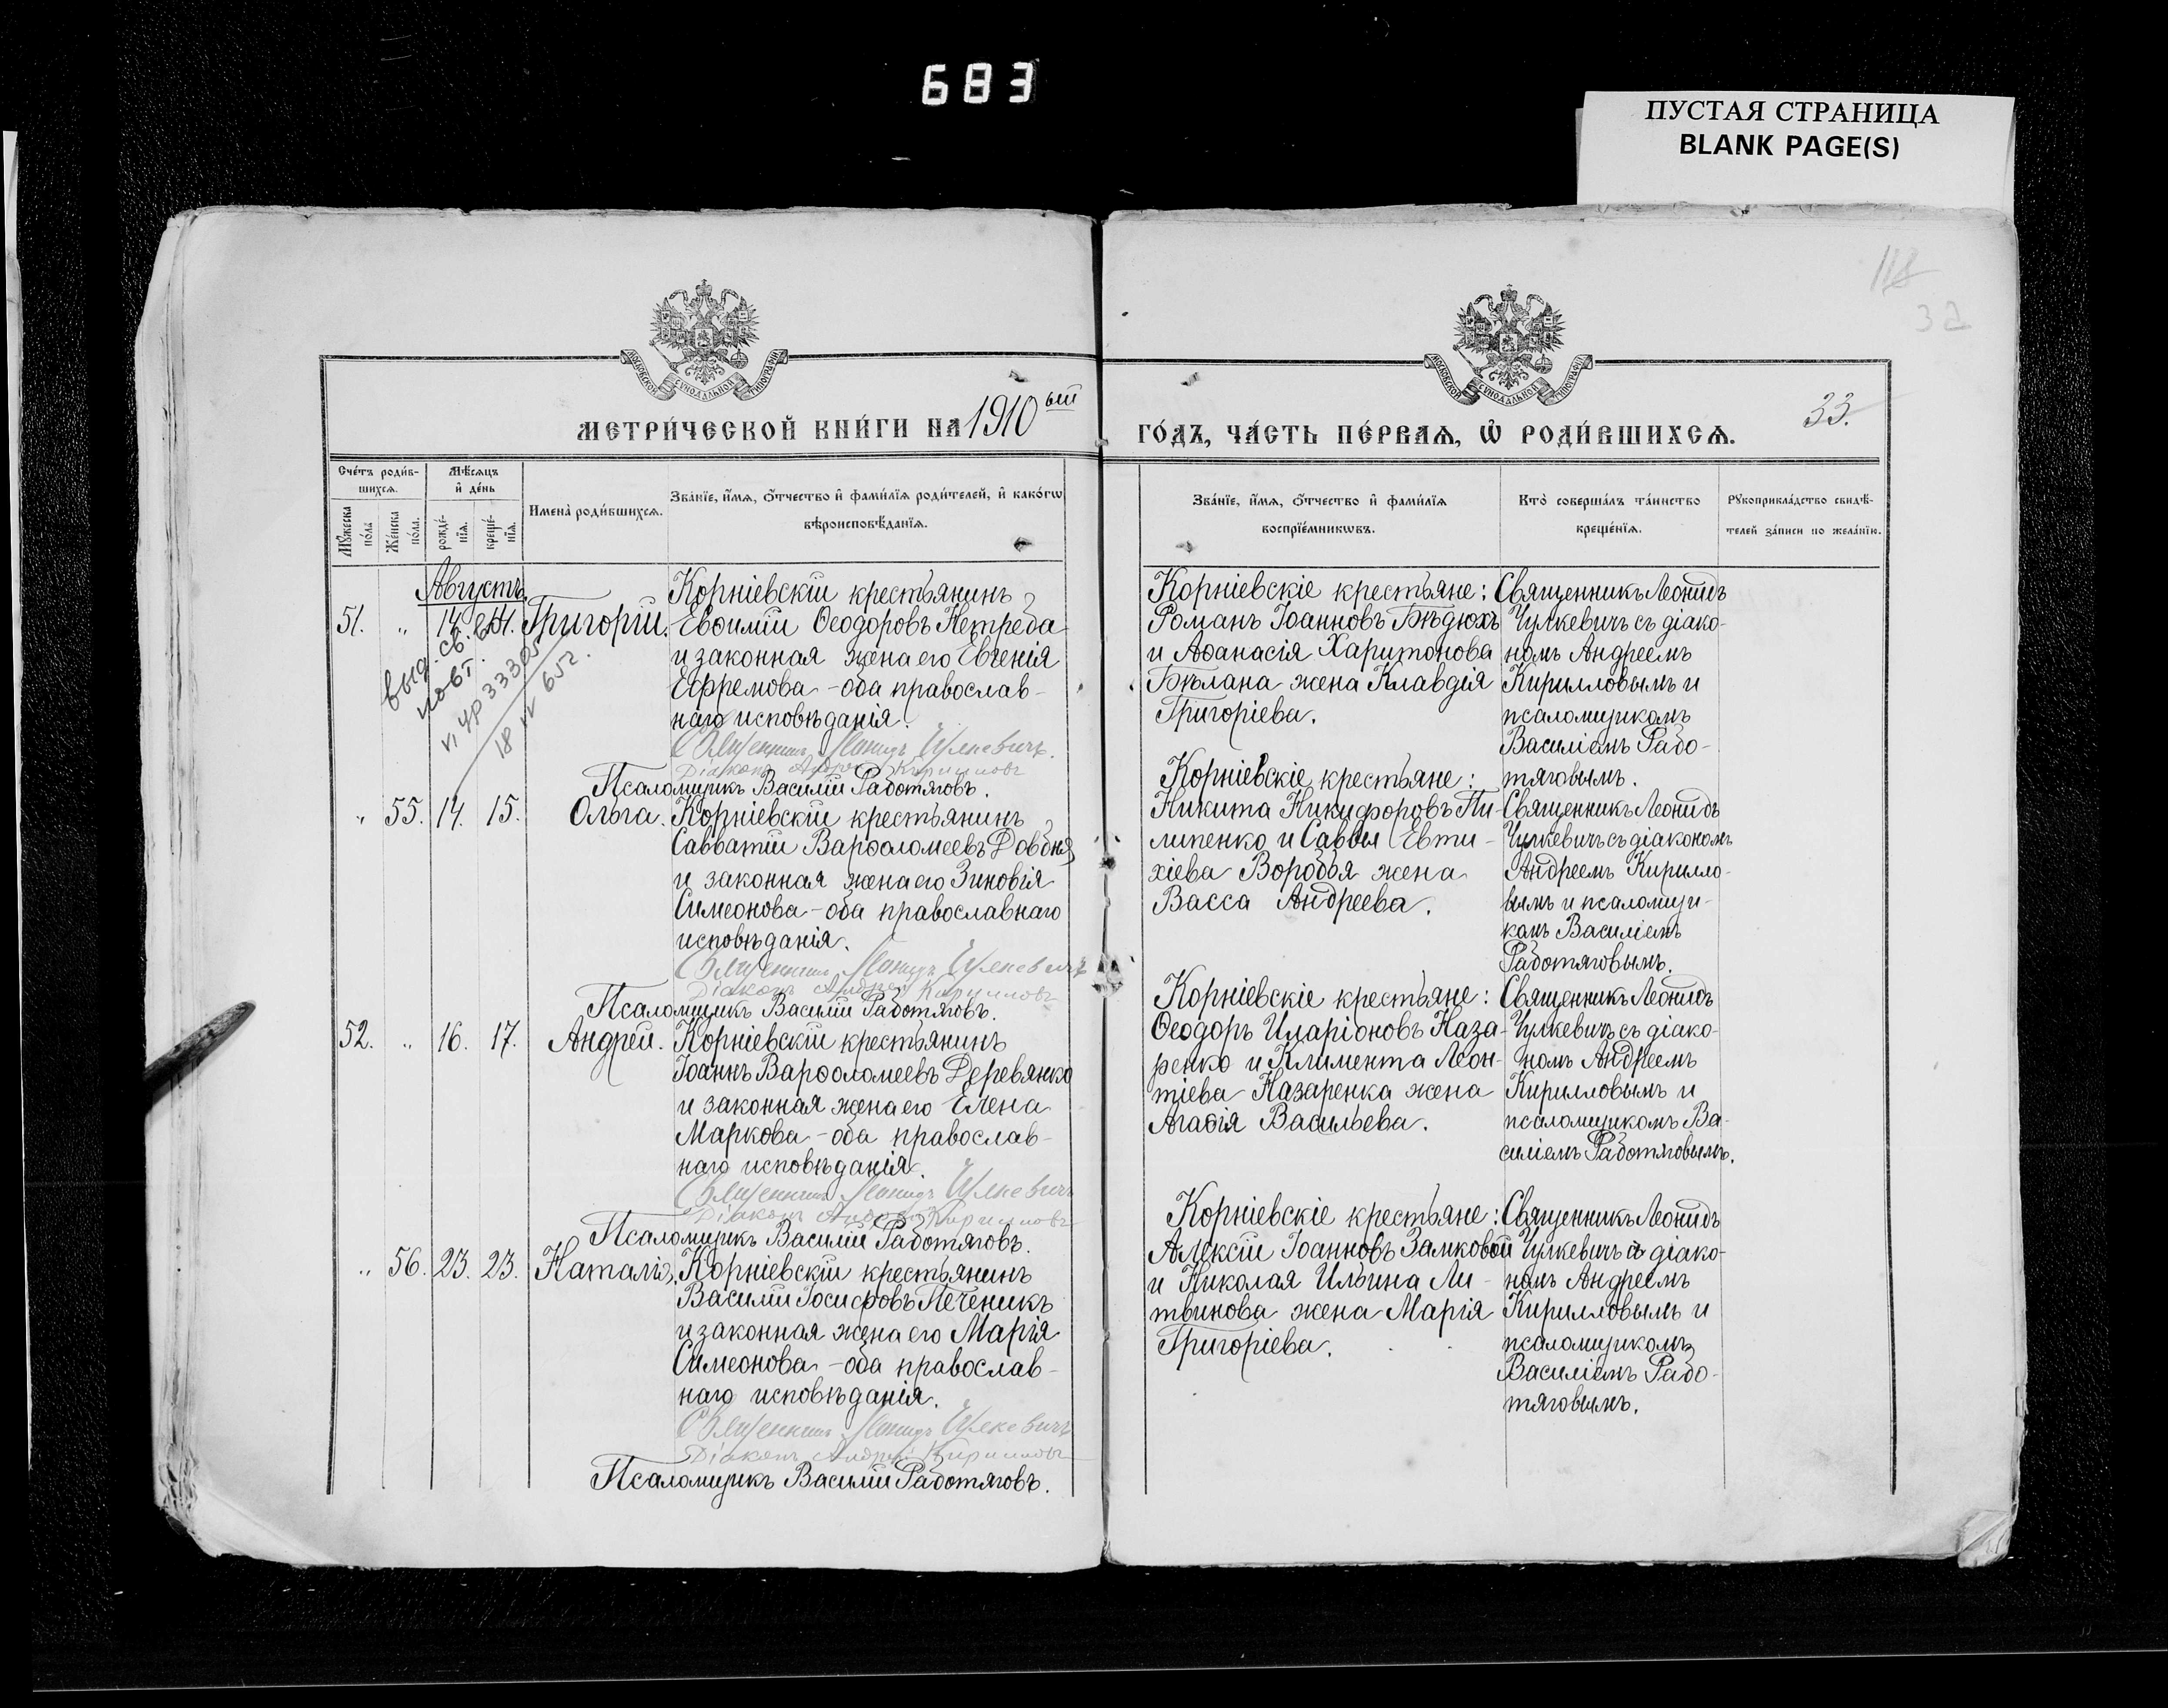 683
ПУСТАЯ СТРАНИЦА
BLANK PAGE(S)
118
32
МОСКОВСКОЙ СѴНОДАЛЬНОЙ ТИПОГРАФІИ
МОСКОВСКОЙ СѴНОДАЛЬНОЙ ТИПОГРАФІИ
МЕТРИ́ЧЕСКОЙ КНИ́ГИ НА 1910ый
ГО́ДЪ, ЧА́СТЬ ПЕ́РВАѦ, Ѽ РОДИ́ВШИХСѦ.
33.
Сче́тъ роди́в-
шихсѧ.
Мꙋжеска по́ла
Же́нска по́ла.
Мѣ́сѧцъ
и҆ де́нь
рожде́-
нїѧ.
креще́-
нїѧ.
Имена̀ роди́вшихсѧ.
Зва́нїе, и҆́мѧ, ѻ҆́тчество и҆ фами́лїѧ роди́телей, и҆ како́гѡ
вѣроисповѣ́данїѧ.
Зва́нїе, и҆́мѧ, ѻ҆́тчество и҆ фами́лїѧ
воспрїе́мникѡвъ.
Кто̀ соверша́лъ та́инство
креще́нїѧ.
Рꙋкоприкла́дство свидѣ́-
телей за́писи по жела́нїю.
Августъ.
51. " 14. 14. Григорій.
Корніевскій крестьянинъ
Евѳимій Ѳеодоровъ Нетреба
и законная жена его Евгенія
Ефремова – оба православ-
наго исповѣданія.
Священникъ Леонидъ Чулкевичъ.
Діаконъ Андрей Кирилловъ
Псаломщикъ Василій Работяговъ.
выд. св.
повт.
18 IV 65 г.
Корніевскіе крестьяне:
Романъ Іоанновъ Бѣдюхъ
и Аѳанасія Харитонова
Бѣлана жена Клавдія
Григоріева.
Священникъ Леонидъ
Чулкевичъ съ діако-
номъ Андреемъ
Кирилловымъ и
псаломщикомъ
Василіемъ Рабо-
тяговымъ.
" 55. 14. 15. Ольга.
Корніевскій крестьянинъ
Савватій Варѳоломеевъ Довбня
и законная жена его Зиновія
Симеонова – оба православнаго
исповѣданія.
Священникъ Леонидъ Чулкевичъ
Діаконъ Андрей Кирилловъ
Псаломщикъ Василій Работяговъ.
Корніевскіе крестьяне:
Никита Никифоровъ Пи-
липенко и Саввы Евти-
хіева Воробья жена
Васса Андреева.
Священникъ Леонидъ
Чулкевичъ съ діакономъ
Андреемъ Кирилло-
вымъ и псаломщи-
комъ Василіемъ
Работяговымъ.
52. " 16. 17. Андрей.
Корніевскій крестьянинъ
Іоаннъ Варѳоломеевъ Деревянко
и законная жена его Елена
Маркова – оба православ-
наго исповѣданія.
Священникъ Леонидъ Чулкевичъ
Діаконъ Андрей Кирилловъ
Псаломщикъ Василій Работяговъ.
Корніевскіе крестьяне:
Ѳеодоръ Иларіоновъ Наза-
ренко и Климента Леон-
тіева Назаренка жена
Агаѳія Васильева.
Священникъ Леонидъ
Чулкевичъ съ діако-
номъ Андреемъ
Кирилловымъ и
псаломщикомъ Ва-
силіемъ Работяговымъ.
" 56. 23. 23. Наталія.
Корніевскій крестьянинъ
Василій Іосифовъ Печеникъ
и законная жена его Марія
Симеонова – оба православ-
наго исповѣданія.
Священникъ Леонидъ Чулкевичъ
Діаконъ Андрей Кирилловъ
Псаломщикъ Василій Работяговъ.
Корніевскіе крестьяне:
Алексій Іоанновъ Замковой
и Николая Ильина Ли-
твинова жена Марія
Григоріева.
Священникъ Леонидъ
Чулкевичъ съ діако-
номъ Андреемъ
Кирилловымъ и
псаломщикомъ
Василіемъ Рабо-
тяговымъ.